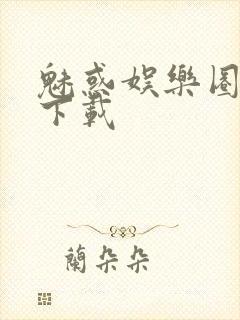 魅惑娛樂圈
下載
蘭朵朵